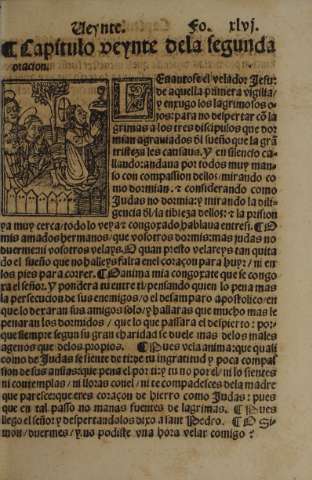 Veynte. Fo. xlvj.
¶ Capitulo veynte dela segunda
oracion.
LEuantose el velador Jesu:
de aquella primera vigilia/
y enxugo los lagrimosos o-
jos: para no despertar cõ la-
grimas a los tres discipulos que dor
mian agrauados dl sueño que la grã
tristeza les causaua. Y en silencio ca
llando: andaua por todos muy man-
so con compassion dellos/mirando co
mo dormian. ⁊ considerando como
Judas no dormia: y mirando la dili-
gencia dl/ la tibieza dellos: ⁊ la prision
ya muy cerca/todo lo veya ⁊ congoxado hablaua entresi. ¶ O
mis amados hermanos/ que vosotros dormis: mas judas no
duerme: ni vosotros velays. O quan presto velareys tan quita
do el sueño que no halleys falta en el coraçon para huyr/ ni en
los pies para correr. ¶ O anima mia congoxate que se congo
xa el señor. Y pondera tu entre ti/ pensando quien lo pena mas
la persecucion de sus enemigos/ o el desamparo apostolico/en
que lo dexaran sus amigos solo/ y hallaras que mucho mas le
penaran los dormidos/ que lo que passara el despierto: por-
que siempre segun su gran charidad se duele mas delos males
agenos que delos proprios. ¶ Pues vela anima: que quasi
como de Judas se siente de ti: de tu ingratitud y poca compas
sion de sus ansias: que pena el por ti: y tu no por el/ ni lo sientes
ni contemplas/ ni lloras conel/ ni te compadesces dela madre
que paresce: que eres coraçon de hierro como Judas: pues
que en tal passo no manas fuentes de lagrimas. ¶ Pues
llego el señor y despertandolos dixo a sant Pedro. ¶ O Si-
mon/duermes/ y no podiste vna hora velar comigo?